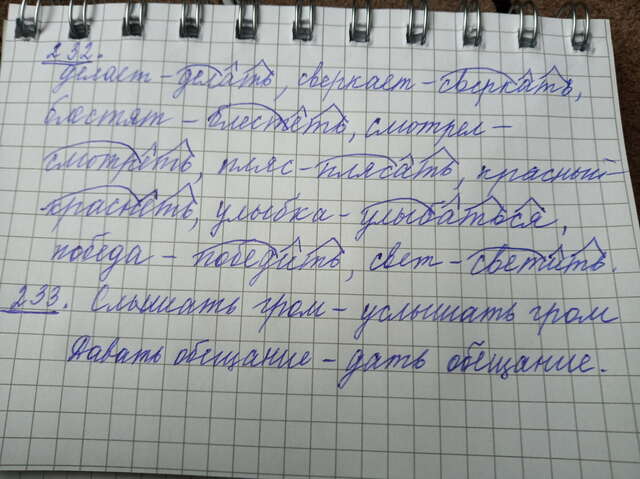 232.
делает - делать, сверкает - сверкать,
блестят - блестеть, смотрел -
смотреть, пляс - плясать, красный -
краснеть, улыбка - улыбаться,
победа - победить, свет - светить.
233. Слышать гром - услышать гром
Давать обещание - дать обещание.